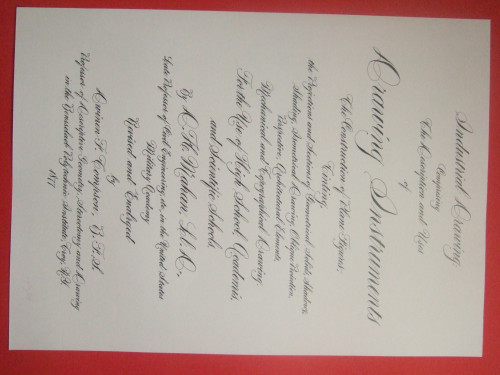 Industrial Drawing,
Comprising
The Description and Uses
of
Drawing Instruments
The Construction of Plane Figures,
Tinting,
the Projections and Sections of Geometrical Solids, Shadows,
Shading, Isometrical Drawing, Oblique Projection,
Perspective, Architectural Elements,
Mechanical and Topographical Drawing.
For the Use of High School, Academies,
and Scientific Schools.
By D. H. Mahan, LL.D.,
Late Professor of Civil Engineering, &c., in the United States
Military Academy
Revised and Enlarged
by
Dwinel F. Thompson, B.S.
Professor of Descriptive Geometry, Stereotomy and Drawing
in the Rensselaer Polytechnic Institute, Troy, N.Y.
1877